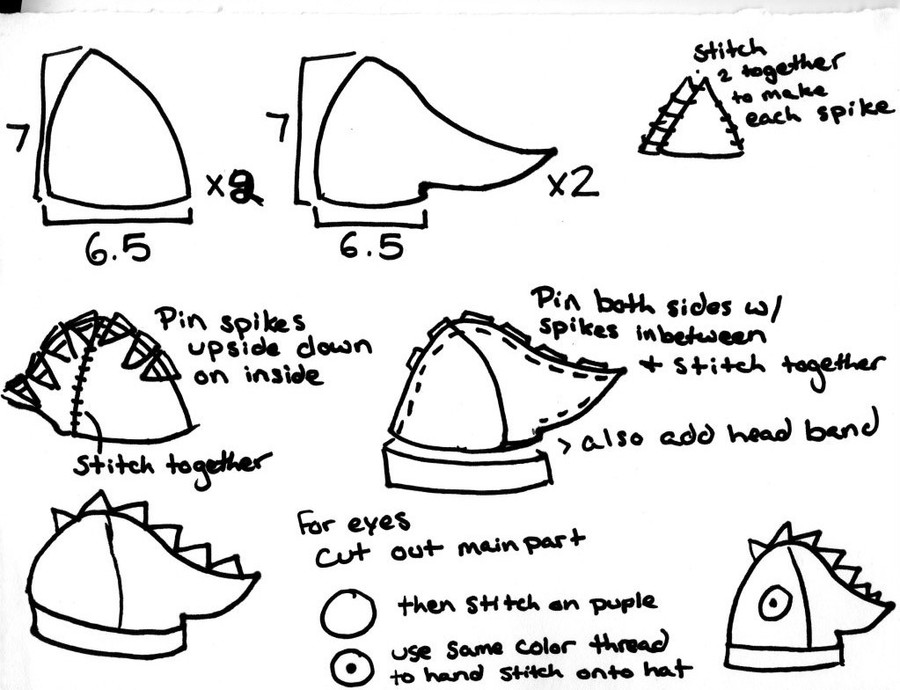 7
6.5
x2
7
6.5
x2
Stitch
2 together
to make
each spike
Pin spikes
upside down
on inside
Stitch together
Pin both sides w/
spikes inbetween
+ stitch together
> also add head band
For eyes
cut out main part
then stitch on puple
use same color thread
to hand stitch onto hat